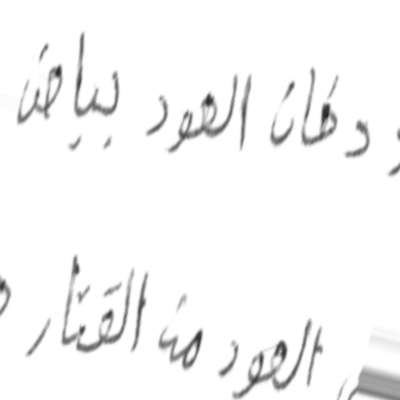 و دخان العود بياض
العود من القتار